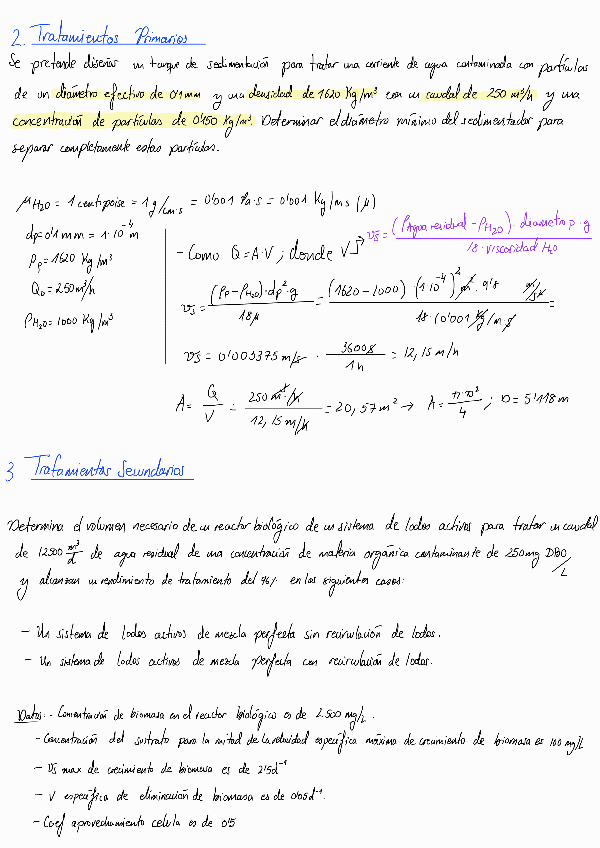 2. Tratamientos Primarios
Se pretende diseñar un tanque de sedimentación para tratar una corriente de agua contaminada con partículas
de un diámetro efectivo de 0'1 mm y una densidad de 1620 Kg/m³ con un caudal de 250 m³/h y una
concentración de partículas de 0'150 Kg/m³. Determinar el diámetro mínimo del sedimentador para
separar completamente estas partículas.
μH2O = 1 centipoise = 1 g/cm·s = 0'001 Pa·s = 0'001 Kg/ms (μ)
dp=0'1 mm = 1·10⁻⁴ m
ρp=1620 Kg/m³
Q0=250 m³/h
ρH2O=1000 Kg/m³
- Como Q=A·V ; donde VS → vs = (ρAgua residual - ρH2O) · diametro p · g / 18 · viscosidad H2O
vs = (ρp-ρH2O)·dp²·g / 18μ = (1620-1000)·(1·10⁻⁴)² m²·9'8 m/s² / 18·(0'001 Kg/m·s) =
vs = 0'003375 m/s · 3600s / 1h = 12,15 m/h
A = Q/V = 250 m³/h / 12,15 m/h = 20,57 m² → A = π·D²/4 ; D = 5'118 m
3 Tratamientos Secundarios
Determina el volumen necesario de un reactor biológico de un sistema de lodos activos para tratar un caudal
de 12500 m³/d de agua residual de una concentración de materia orgánica contaminante de 250 mg DBO/L
y alcanzan un rendimiento de tratamiento del 96% en los siguientes casos:
- Un sistema de lodos activos de mezcla perfecta sin recirculación de lodos.
- Un sistema de lodos activos de mezcla perfecta con recirculación de lodos.
Datos: - Concentración de biomasa en el reactor biológico es de 2.500 mg/L.
- Concentración del sustrato para la mitad de la velocidad específica máxima de crecimiento de biomasa es 100 mg/L
- Vs max de crecimiento de biomasa es de 2'5d⁻¹
- V específica de eliminación de biomasa es de 0'05d⁻¹.
- Coef aprovechamiento celula es de 0'5